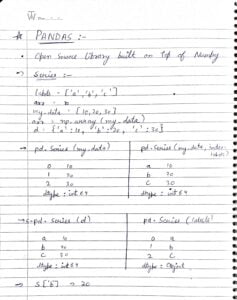 * PANDAS :-
• Open Source Library built on Top of Numpy
• Series :-
labels = ['a', 'b', 'c']
my_data = [10, 20, 30]
arr = np.array (my_data)
d = {'a': 10, 'b': 20, 'c': 30}
→ pd. Series (my_data)
0 10
1 20
2 30
dtype: int 64
pd. Series (my_data, index=
labels)
a 10
b 20
c 30
dtype: int 64
→ s = pd. Series (d)
a 10
b 20
c 30
dtype: int 64
pd. Series (labels)
0 a
1 b
2 c
dtype = Object
→ S ['b'] → 20